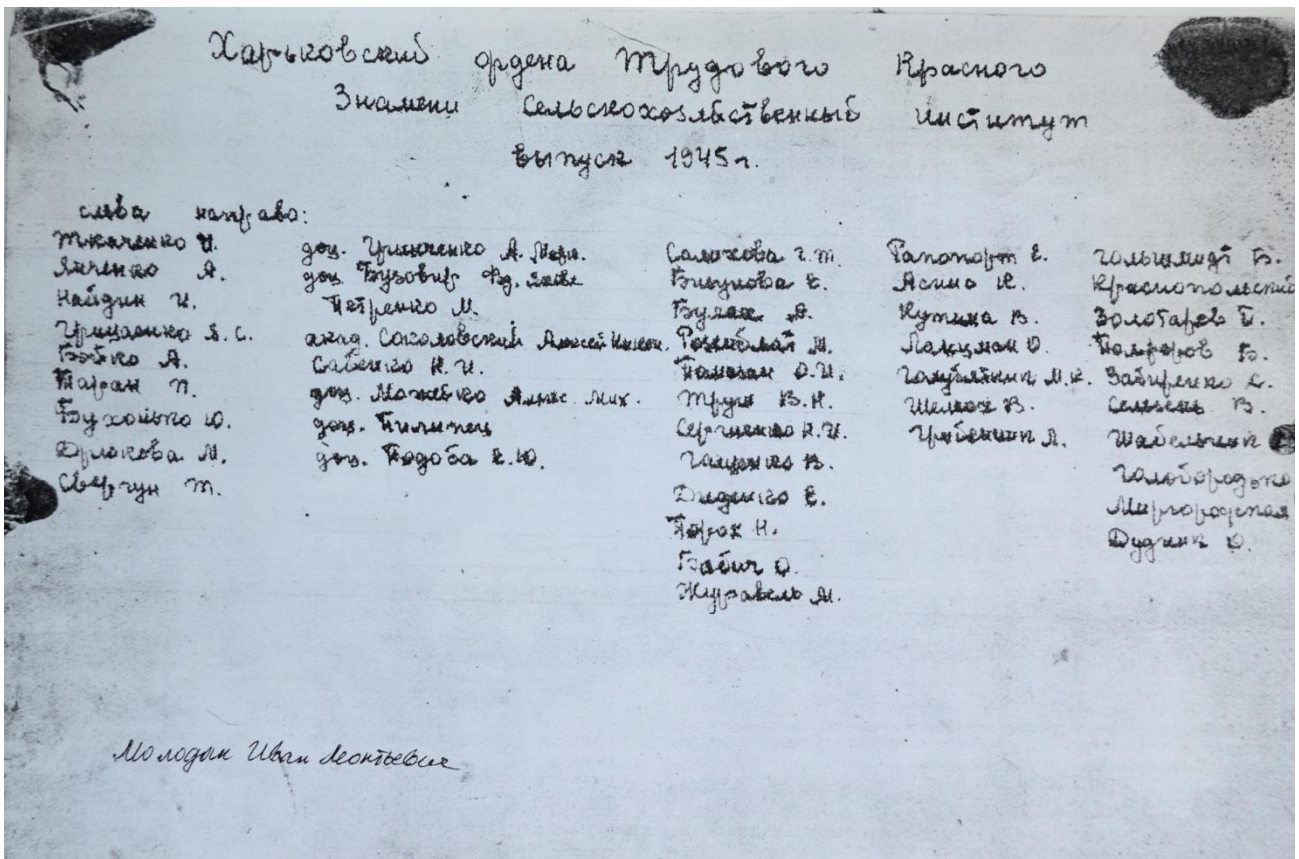 Харьковский ордена Трудового Красного
Знамени Сельскохозяйственный институт
выпуск 1945 г.
слева направо:
Ткаченко И.
Янченко А.
Найдин И.
Грицаенко А. С.
Бойко А.
Таран П.
Ю.
М.
Свергун Т.
доц. Гринченко А.
доц. Бузовир
Петренко М.
акад. Соколовский Алексей
Савенко Н. И.
доц. Можейко Алекс. Мих.
доц. Пилипец
доц. Подоба Е. Ю.
Салихова Г. Т.
Бикунова Е.
Буряк А.
Розенблат М.
О. И.
Труш В. Н.
Сергиенко Н. И.
Гащенко В.
Диденко Е.
Порох Н.
Бабич О.
Журавель М.
Рапопорт Е.
Ясино К.
Кутина В.
Лакцман О.
М. К.
Шелкох В.
Гребенник А.
Гольцмидт Б.
Краснопольский
Золотарев П.
Б.
С.
Селезень В.
Шабельник
Голобородько
Миргородская
Дудник О.
Молодык Иван Леонтьевич